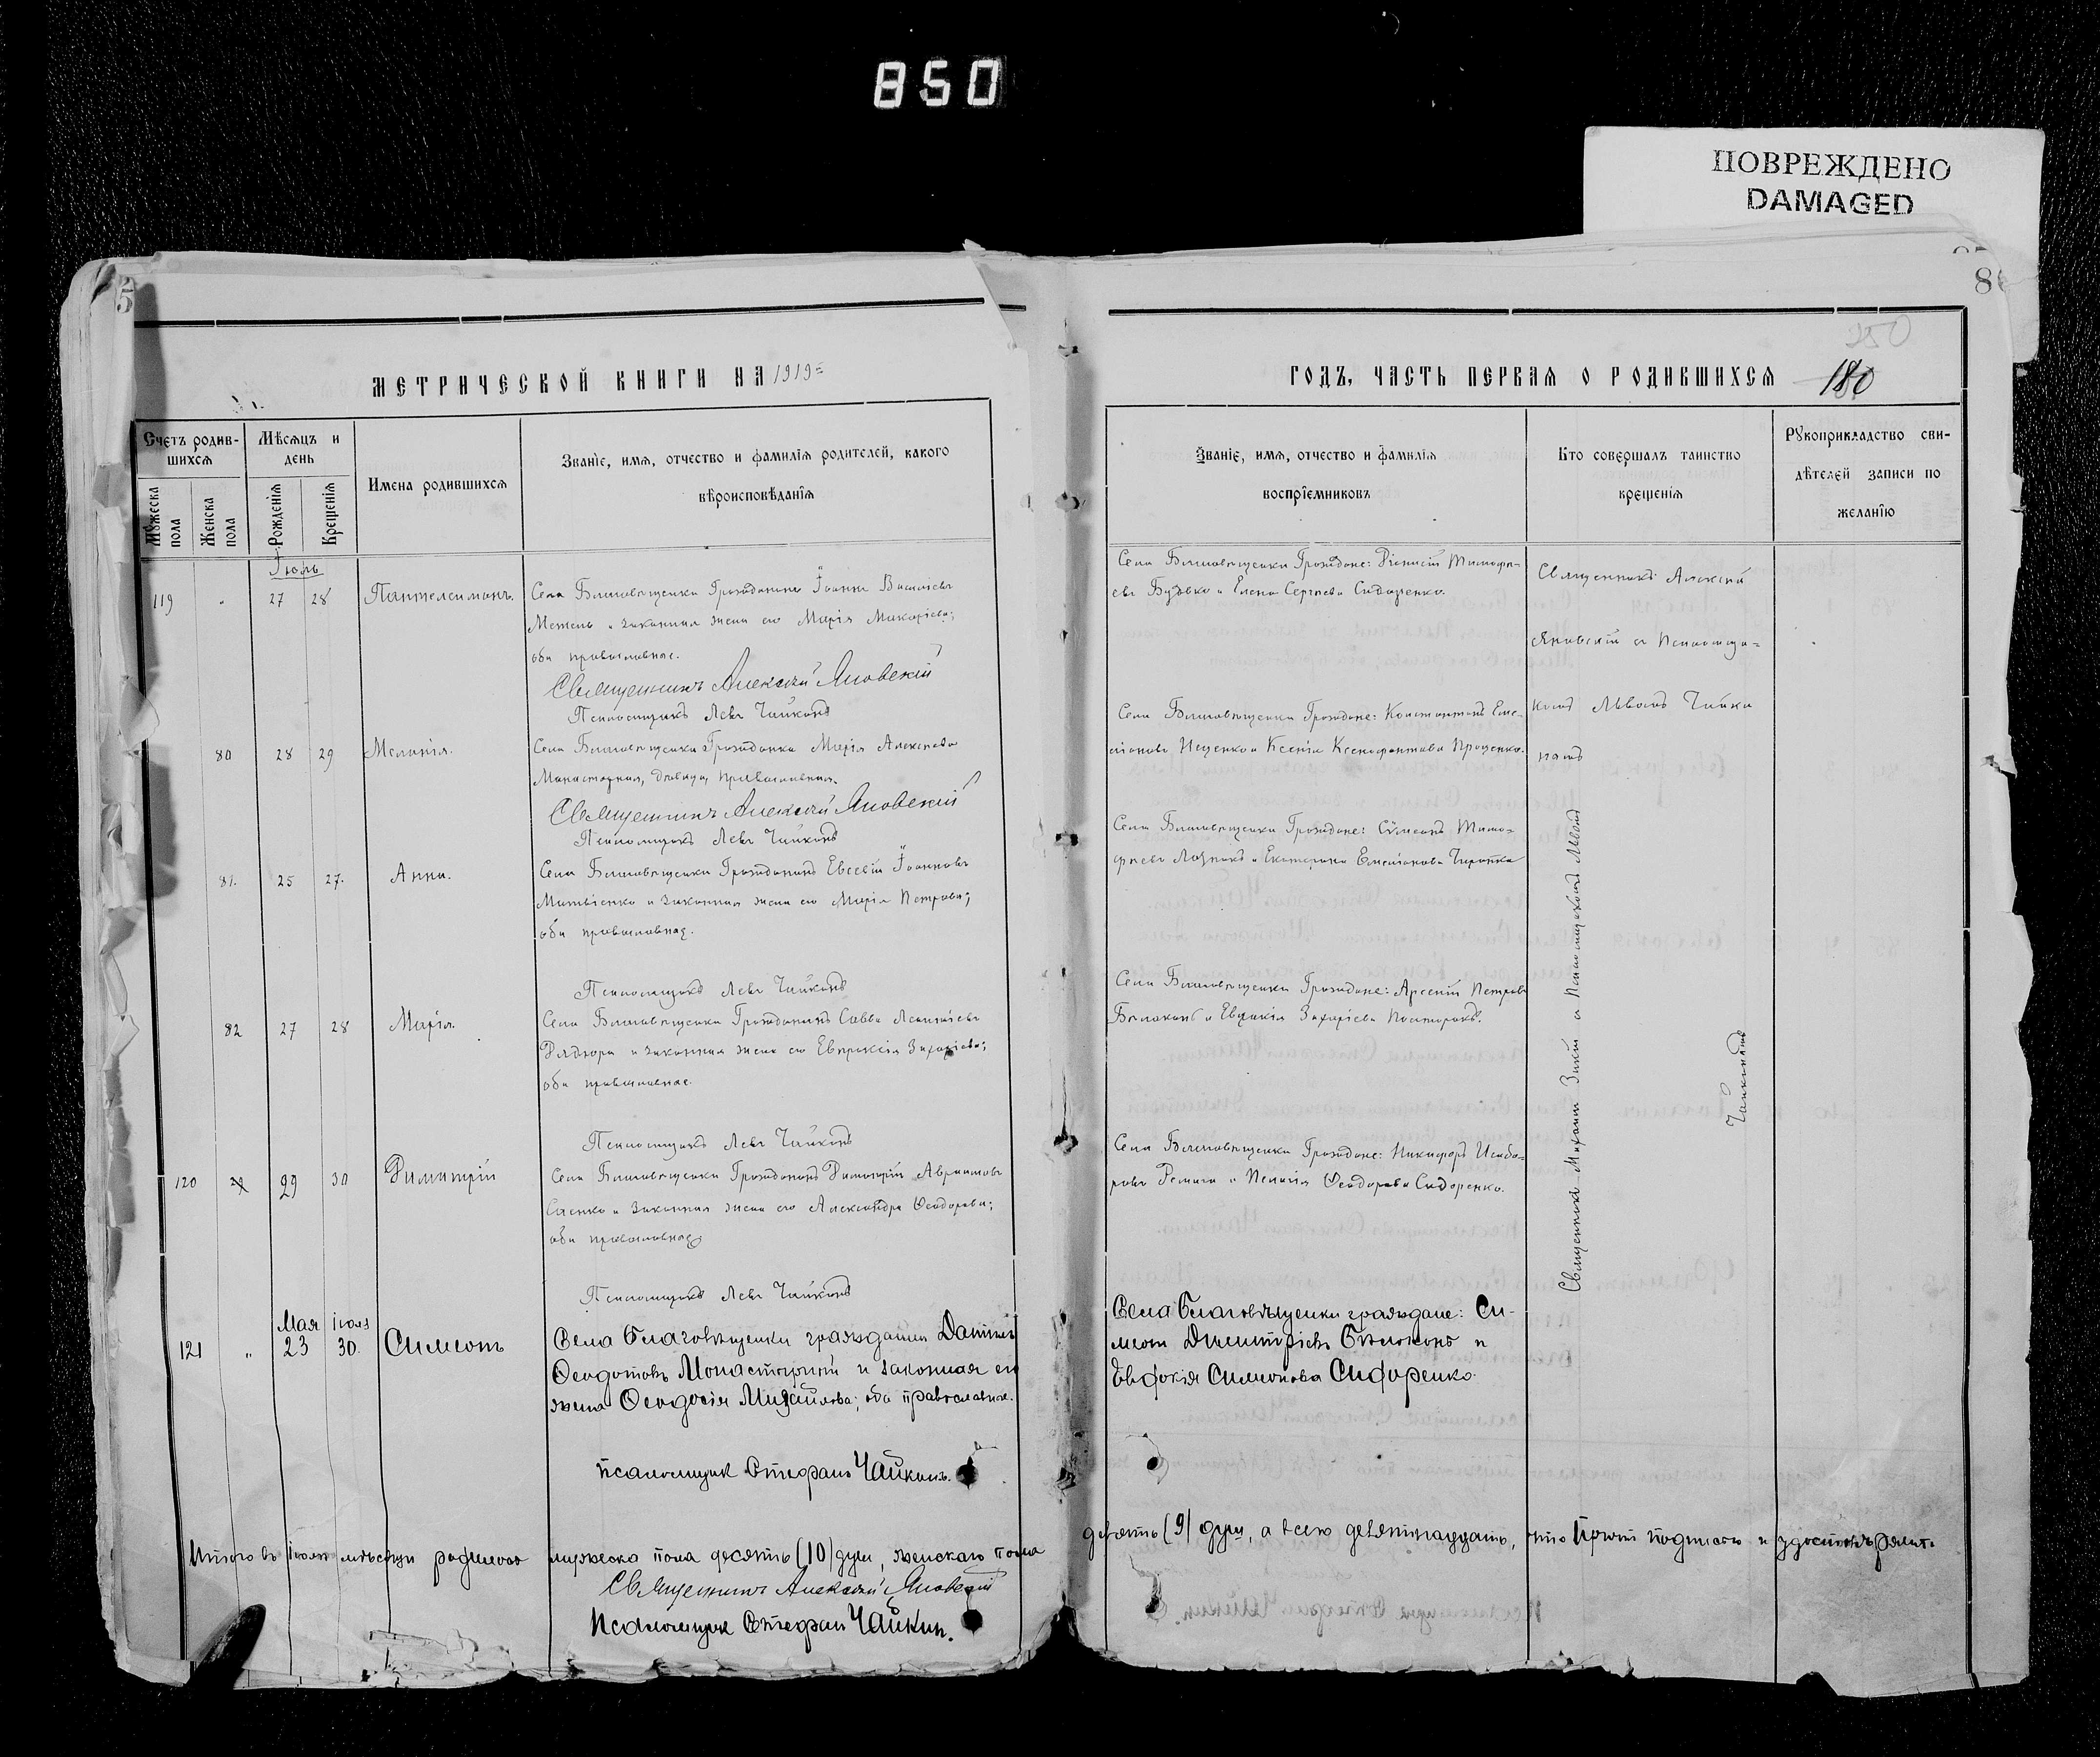 850
ПОВРЕЖДЕНО
DAMAGED
5
8
250
180
МЕТРИЧЕСКОЙ КНИГИ НА 1919
ГОДЪ, ЧАСТЬ ПЕРВАЯ О РОДИВШИХСЯ
Счетъ родив-
шихся
Мужеска пола
Женска пола
Мѣсяцъ и
день
Рожденія
Крещенія
Имена родившихся
Званіе, имя, отчество и фамилія родителей, какого
вѣроисповѣданія
Званіе, имя, отчество и фамилія
воспріемниковъ
Кто совершалъ таинство
крещенія
Рукоприкладство сви-
дѣтелей записи по
желанію
Іюль
119 " 27 28 Пантелеимонъ.
Села Благовѣщенки Гражданинъ Іоаннъ Василіевъ
Метель и законная жена его Марія Макаріева;
оба православные.
Священникъ Алексій Яновскій
Псаломщикъ Левъ Чайкинъ
Села Благовѣщенки Граждане: Діонисій Тимофе-
евъ Будько и Елена Сергѣева Сидоренко.
Священникъ Алексій
Яновскій съ Псаломщи-
комъ Львомъ Чайки
нымъ
80 28 29 Меланія.
Села Благовѣщенки Гражданка Марія Алексѣева
Монастырная, дѣвица, православная.
Священникъ Алексій Яновскій
Псаломщикъ Левъ Чайкинъ
Села Благовѣщенки Граждане: Константинъ Еме-
ліановъ Ищенко и Ксенія Ксенофонтова Проценко.
81. 25 27. Анна.
Села Благовѣщенки Гражданинъ Евсевій Іоанновъ
Матвіенко и законная жена его Марія Петрова;
оба православные.
Псаломщикъ Левъ Чайкинъ
Села Благовѣщенки Граждане: Сумеонъ Тимо-
фѣевъ и Екатерина Емеліанова
82 27 28 Марія.
Села Благовѣщенки Гражданинъ Савва Леонтіевъ
и законная жена его Евдокія Захаріева;
оба православные.
Псаломщикъ Левъ Чайкинъ
Села Благовѣщенки Граждане: Арсеній Петровъ
Бѣлоконъ и Евдокія Захаріева
Священникъ Михаилъ съ Псаломщикомъ Львомъ
Чайкинымъ
120 29 30 Димитрій
Села Благовѣщенки Гражданинъ Димитрій Авраамовъ
Саенко и законная жена его Александра Ѳеодорова;
оба православные
Псаломщикъ Левъ Чайкинъ
Села Благовѣщенки Граждане: Никифоръ Исидо-
ровъ и Пелагія Ѳеодорова Сидоренко.
Мая Іюля
121 " 23 30. Симеонъ
Села Благовѣщенки гражданинъ Даніилъ
Ѳеодотовъ Монастырный и законная его
жена Ѳеодосія Михайлова; оба православные.
псаломщик Стефанъ Чайкинъ.
Села Благовѣщенки граждане: Си-
меонъ Димитріевъ Бѣлоконъ и
Евфокія Симеонова Сидоренко.
Итого въ Іюлѣ мѣсяцѣ родилось мужеска пола десять (10) душ, женскаго пола
девять (9) душ, а всего девятнадцать, что причтъ подписью и удостовѣряетъ.
Священникъ Алексій Яновскій
Псаломщик Стефан Чайкин.